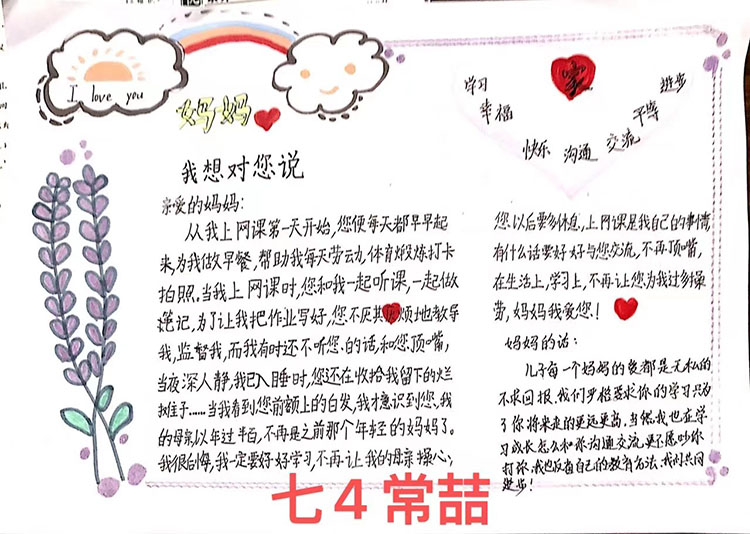 I love you
妈妈
学习
幸福
快乐
沟通
交流
平等
进步
家
我想对您说
亲爱的妈妈:
从我上网课第一天开始,您便每天都早早起
来,为我做早餐,帮助我每天劳动,体育煅炼打卡
拍照.当我上网课时,您和我一起听课,一起做
笔记,为了让我把作业写好,您不厌其烦地教导
我,监督我,而我有时还不听您.的话,和您顶嘴,
当夜深人静,我已入睡时,您还在收拾我留下的烂
摊子……当我看到您前额上的白发,我才意识到您,我
的母亲以年过半百,不再是之前那个年轻的妈妈了。
我很后悔,我一定要好好学习,不再让我的母亲操心;
您以后要多休息,上网课是我自己的事情,
有什么话要好好与您交流,不再顶嘴,
在生活上,学习上,不再让您为我过多操
劳,妈妈我爱您!
妈妈的话:
儿子每一个妈妈的爱都是无私的
不求回报.我们严格要求你的学习只为
了你将来走的更远更高,当然我也在学
习成长怎么和你沟通交流,更不愿吵你
打你,我也反省自己的教育方法.我们共同
进步!
七4常喆